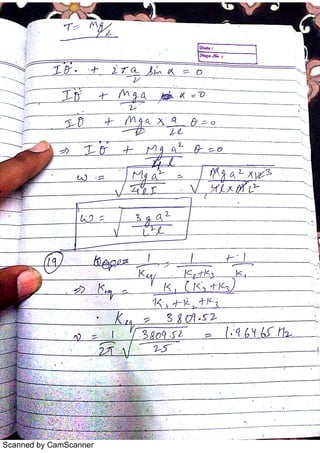 T = Mg/2
Date :
Page No :
Iθ̈ + 2Ta/2 sin α = 0
Iθ̈ + Mga/2 α = 0
Iθ̈ + Mga/2 × a/2l θ = 0
⇒ Iθ̈ + Mga²/4l θ = 0
ω = √(Mga²/4lI) = √(Mga² × 12 3/4l × ML²)
ω = √(3ga²/L²l)
(19) 1/Keq = 1/(K₂+K₃) + 1/K₁
⇒ Keq = K₁(K₂+K₃)/(K₁+K₂+K₃)
Keq = 3809.52
ν = 1/2π √(3809.52/25) = 1.96465 Hz
Scanned by CamScanner